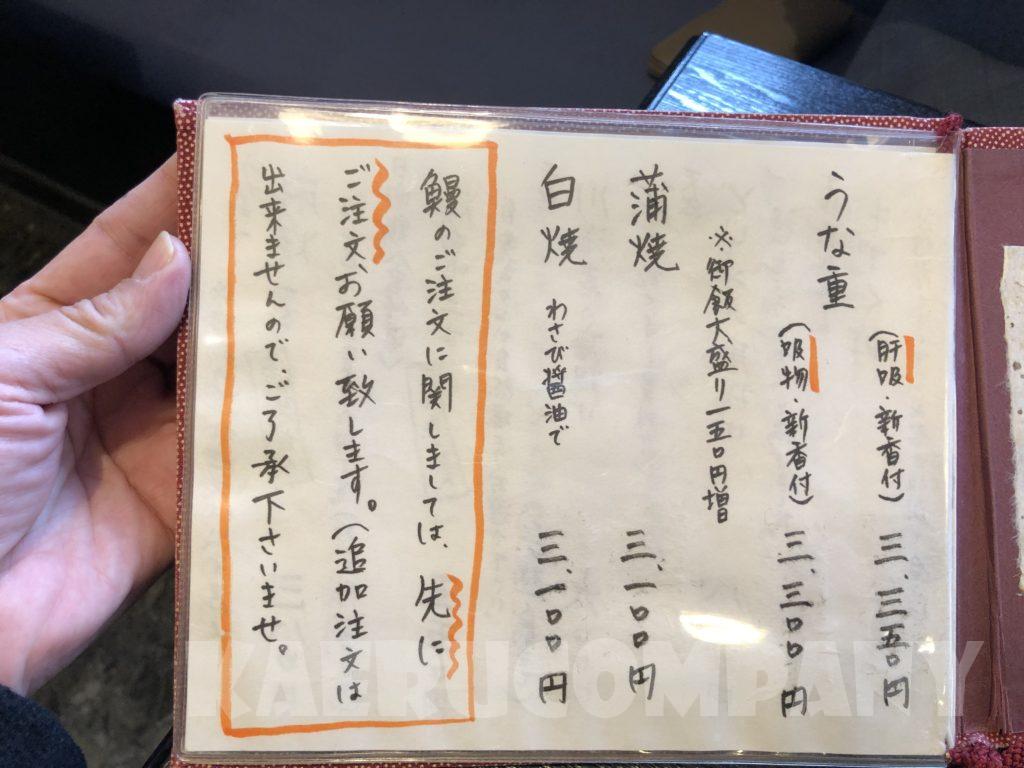 うな重
(肝吸・新香付) 三、三五〇円
(吸物・新香付) 三、三〇〇円
※御飯大盛り一五〇円増
蒲焼 三、一〇〇円
白焼 わさび醤油で 三、一〇〇円
鰻のご注文に関しましては、先に
ご注文、お願い致します。(追加注文は
出来ませんので、ご了承下さいませ。
KAERUCOMPANY